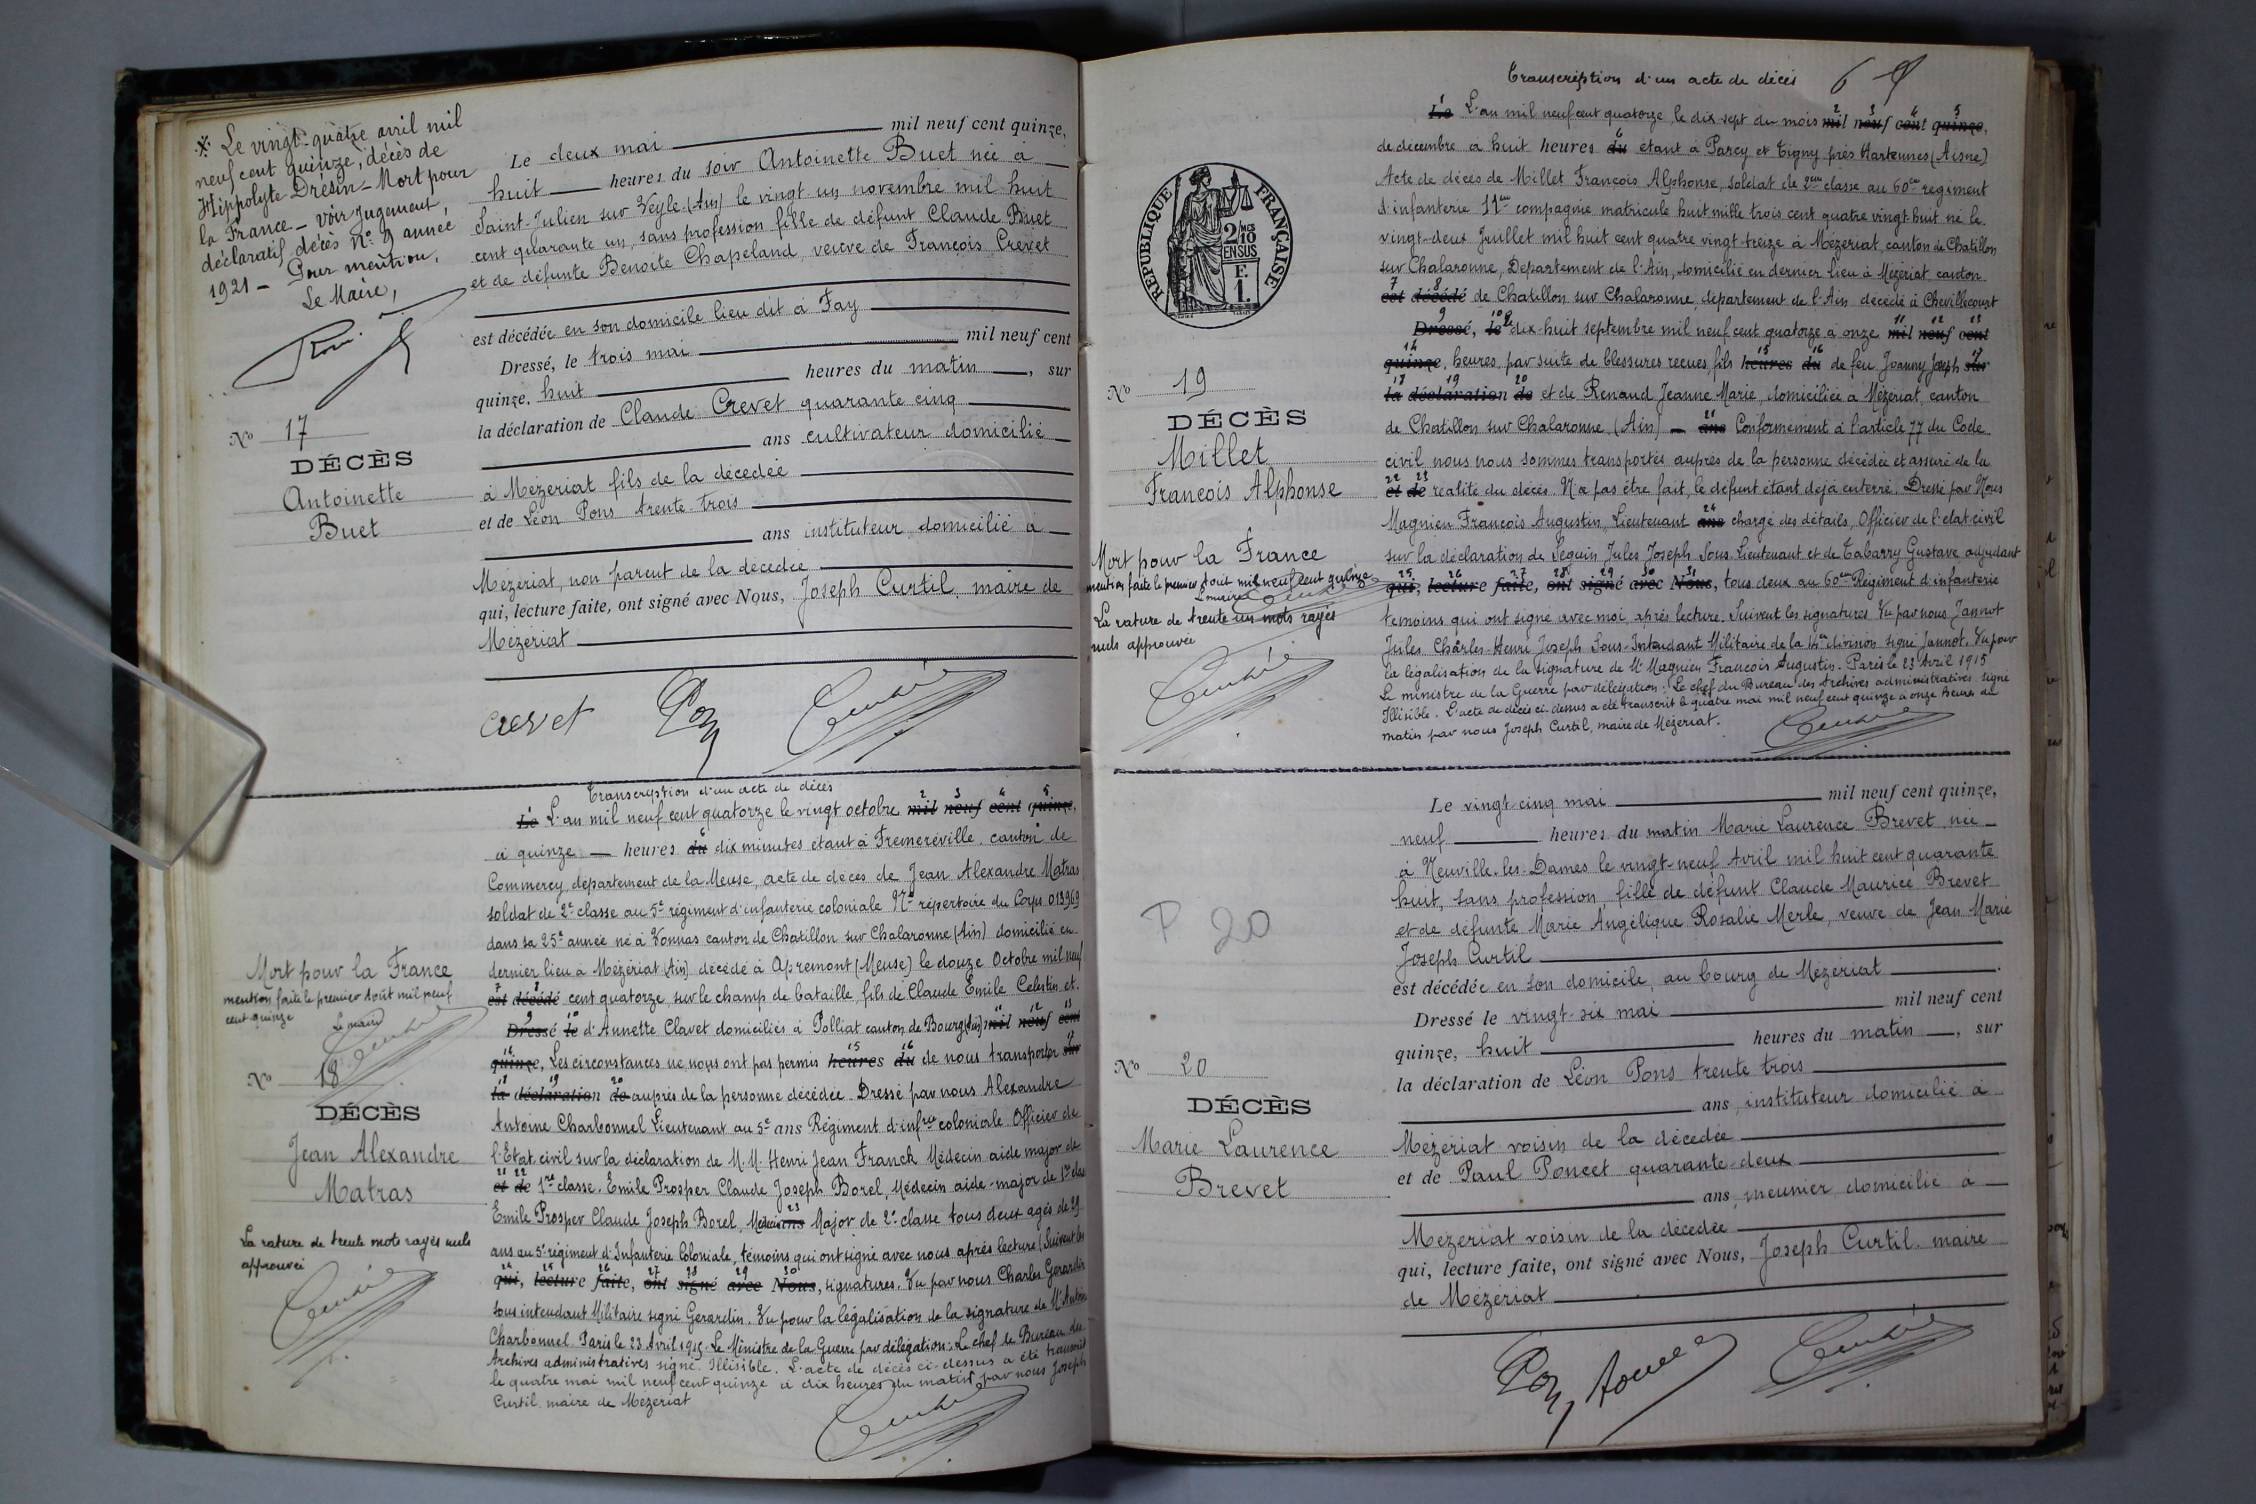 * Le vingt-quatre avril mil
neuf cent quinze, décès de
Hippolyte Drésin - Mort pour
la France - voir Jugement
déclaratif décès n° 9 année
1921 - Pour mention,
Le Maire,
Le deux mai mil neuf cent quinze,
huit heures du soir Antoinette Buet née à
Saint-Julien sur Veyle (Ain) le vingt un novembre mil huit
cent quarante un, sans profession fille de défunt Claude Buet
et de défunte Benoite Chapeland, veuve de François Crevet
est décédée en son domicile lieu dit à Fay
Dressé, le trois mai mil neuf cent
quinze, huit heures du matin, sur
la déclaration de Claude Crevet quarante cinq
ans cultivateur domicilié
à Mézériat fils de la décédée
et de Léon Pons trente-trois
ans instituteur, domicilié à
Mézériat, non parent de la décédée
qui, lecture faite, ont signé avec Nous, Joseph Curtil, maire de
Mézériat
No 17
DÉCÈS
Antoinette
Buet
crevet
Transcription d'un acte de décès
Le L'an mil neuf cent quatorze le vingt octobre mil neuf cent quinze,
à quinze heures du dix minutes étant à Fremeréville, canton de
Commercy, département de la Meuse, acte de décès de Jean Alexandre Matras
soldat de 2e classe au 5e régiment d'infanterie coloniale No répertoire du Corps 013969
dans sa 25e année né à Vonnas canton de Chatillon sur Chalaronne (Ain) domicilié en
dernier lieu à Mézériat (Ain) décédé à Apremont (Meuse) le douze Octobre mil neuf
est décédé cent quatorze, sur le champ de bataille, fils de Claude Emile Celestin et
Dressé le d'Annette Clavet domiciliés à Polliat canton de Bourg (Ain) mil neuf cent
quinze, Les circonstances ne nous ont pas permis heures du de nous transporter sur
la déclaration de auprès de la personne décédée. Dressé par nous Alexandre
Antoine Charbonnel Lieutenant au 5e ans Régiment d'infrie coloniale Officier de
l'Etat civil sur la déclaration de M.M. Henri Jean Franck Médecin aide major de
et de 1re classe. Emile Prosper Claude Joseph Borel, Médecin aide-major de 1re clas
Emile Prosper Claude Joseph Borel, Médecin ans Major de 2e classe tous deux agés de 29
ans au 5e régiment d'Infanterie Coloniale, témoins qui ont signé avec nous après lecture (Suivent les
qui, lecture faite, ont signé avec Nous, signatures. Vu par nous Charles Gerardin
sous intendant Militaire signé Gerardin. Vu pour la légalisation de la signature de Mr Antoine
Charbonnel Paris le 23 Avril 1915. Le Ministre de la Guerre par délégation: Le chef de Bureau des
Archives administratives signé Illisible. L'acte de décès ci-dessus a été transcrit
le quatre mai mil neuf cent quinze à dix heures du matin par nous Joseph
Curtil, maire de Mézériat
Mort pour la France
mention faite le premier Août mil neuf
cent quinze
Le maire
No 18
DÉCÈS
Jean Alexandre
Matras
La rature de trente mots rayés nuls
approuvée
Transcription d'un acte de décès 6
Le L'an mil neuf cent quatorze, le dix sept du mois mil neuf cent quinze,
de décembre à huit heures du étant à Parcy et Tigny près Hartennes (Aisne)
Acte de décès de Millet François Alphonse, soldat de 2eme classe au 60eme regiment
d'infanterie 11eme compagnie matricule huit mille trois cent quatre vingt-huit né le
vingt-deux Juillet mil huit cent quatre vingt treize à Mézériat, canton de Chatillon
sur Chalaronne, Département de l'Ain, domicilié en dernier lieu à Mézériat canton
est décédé de Chatillon sur Chalaronne, département de l'Ain décédé à Chevillecourt
Dressé, le le dix-huit septembre mil neuf cent quatorze à onze mil neuf cent
quinze, heures, par suite de blessures recues, fils heures du de feu Joanny Joseph sur
la déclaration de et de Renaud Jeanne Marie, domiciliée à Mézériat, canton
de Chatillon sur Chalaronne (Ain) ans Conformément à l'article 77 du Code
civil nous nous sommes transportés auprès de la personne décédée et assuré de la
et de réalité du décès. N'a pas être fait, le défunt étant déjà enterré. Dressé par Nous
Magnien François Augustin, Lieutenant ans chargé des détails, Officier de l'état civil
sur la déclaration de Seguin Jules Joseph Sous-Lieutenant et de Tabarry Gustave adjudant
qui, lecture faite, ont signé avec Nous, tous deux au 60eme Régiment d'infanterie
témoins qui ont signé avec moi après lecture. Suivent les signatures Vu par nous Jannot
Jules Charles-Henri Joseph Sous-Intendant Militaire de la 14eme division signé Jannot. Vu pour
la légalisation de la signature de Mr Magnien François Augustin. Paris le 23 Avril 1915
Le ministre de la Guerre par délégation: Le chef du Bureau des Archives administratives signé
Illisible. L'acte de décès ci-dessus a été transcrit le quatre mai mil neuf cent quinze à onze heures du
matin par nous Joseph Curtil, maire de Mézériat.
RÉPUBLIQUE FRANÇAISE
2 MES
10
EN SUS
F.
1.
No 19
DÉCÈS
Millet
François Alphonse
Mort pour la France
mention faite le premier Août mil neuf cent quinze
Le maire
La rature de trente un mots rayés
nuls approuvée
Le vingt-cinq mai mil neuf cent quinze,
neuf heures du matin Marie Laurence Brevet née
à Neuville-les-Dames le vingt-neuf Avril mil huit cent quarante
huit, sans profession, fille de défunt Claude Maurice Brevet
et de défunte Marie Angélique Rosalie Merle, veuve de Jean Marie
Joseph Curtil
est décédée en son domicile, au bourg de Mézériat
Dressé le vingt-six mai mil neuf cent
quinze, huit heures du matin, sur
la déclaration de Léon Pons trente trois
ans, instituteur domicilié à
Mézériat voisin de la décédée
et de Paul Poncet quarante-deux
ans, meunier, domicilié à
Mézériat voisin de la décédée
qui, lecture faite, ont signé avec Nous, Joseph Curtil, maire
de Mézériat
P 20
No 20
DÉCÈS
Marie Laurence
Brevet